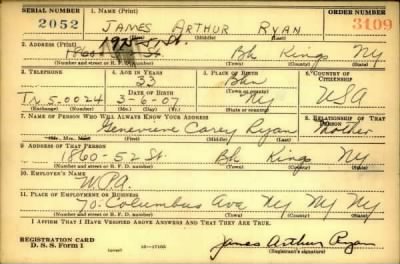 SERIAL NUMBER 1. NAME (Print) ORDER NUMBER
2052 JAMES ARTHUR RYAN 3109
(First) (Middle) (Last)
2. ADDRESS (Print)
1860 52 St. Bk Kings NY
(Number and street or R. F. D. number) (Town) (County) (State)
3. TELEPHONE 4. AGE IN YEARS 5. PLACE OF BIRTH 6. COUNTRY OF CITIZENSHIP
33 Bkn
DATE OF BIRTH (Town or county)
5.0024 3-6-07 NY USA
(Exchange) (Number) (Mo.) (Day) (Yr.) (State or country)
7. NAME OF PERSON WHO WILL ALWAYS KNOW YOUR ADDRESS 8. RELATIONSHIP OF THAT PERSON
Genevieve Carey Ryan Mother
(Mr., Mrs., Miss) (First) (Middle) (Last)
9. ADDRESS OF THAT PERSON
1860-52 St. Bk Kings NY
(Number and street or R. F. D. number) (Town) (County) (State)
10. EMPLOYER'S NAME
W.P.A.
11. PLACE OF EMPLOYMENT OR BUSINESS
70 Columbus Ave NY NY NY
(Number and street or R. F. D. number) (Town) (County) (State)
I AFFIRM THAT I HAVE VERIFIED ABOVE ANSWERS AND THAT THEY ARE TRUE.
REGISTRATION CARD
D. S. S. FORM 1 James Arthur Ryan
(Registrant's signature)